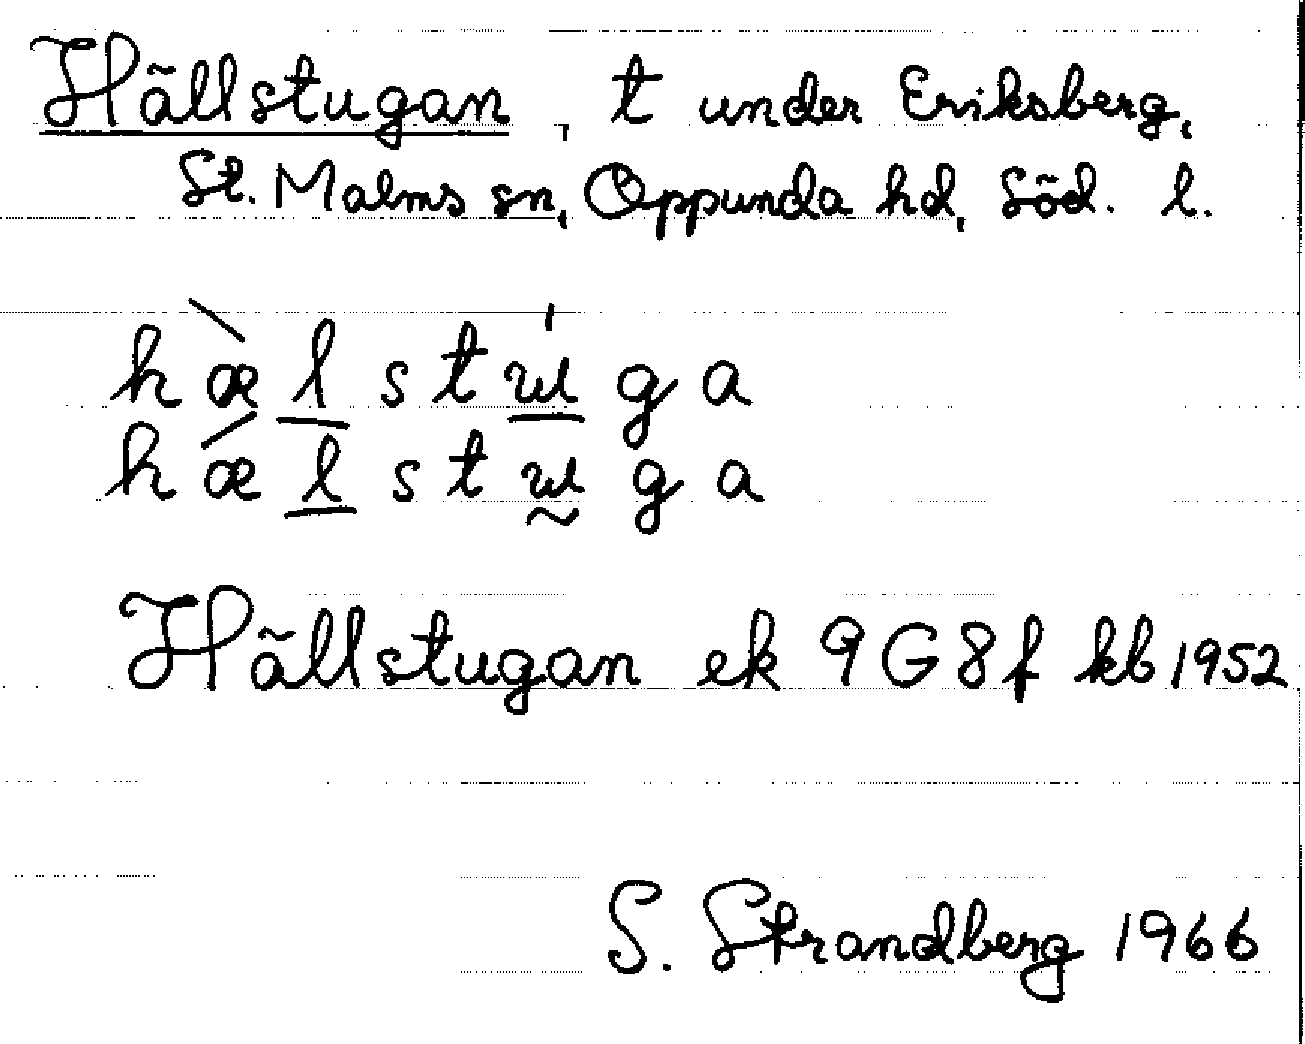 Hällstugan, t under Eriksberg,
St. Malms sn, Oppunda hd, Söd. l.
hæ̀lstɯ́ga
hǽlstɯga
Hällstugan ek 9G8f kb 1952
S. Strandberg 1966